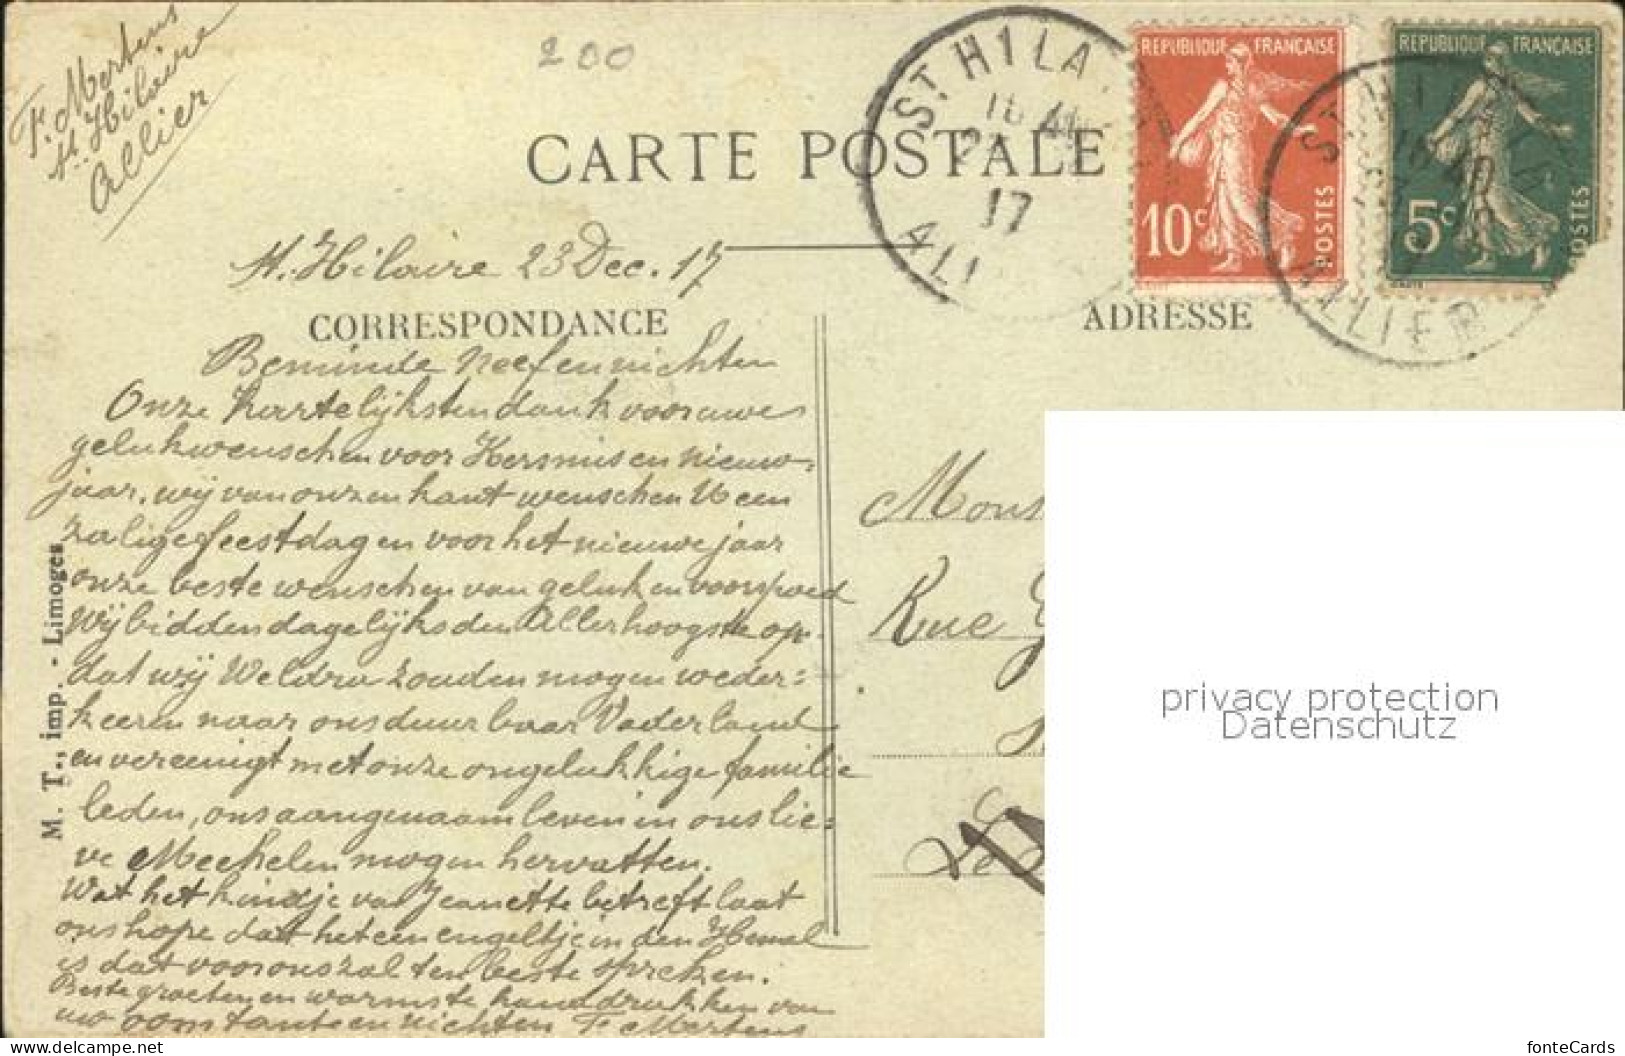 F. Mertens
St. Hilaire
Allier
200
CARTE POSTALE
ST HILA
16 40
17
ALI
REPUBLIQUE FRANÇAISE
10c
POSTES
REPUBLIQUE FRANÇAISE
5c
POSTES
ST HILA
16 40
ALLIER
St. Hilaire 23 Dec. 17
CORRESPONDANCE
ADRESSE
Beminde Neef en nichten
Onze hartelijksten dank voor uwe
gelukwenschen voor Kersmis en nieuw-
jaar. wij van onzen kant wenschen U een
zalige feestdagen voor het nieuwe jaar
onze beste wenschen van geluk en voorspoed
Wij bidden dagelijks den Allerhoogste op-
dat wij Weldra zouden mogen weder-
keeren naar ons duurbaar Vaderland
en vereenigt met onze ongelukkige familie
leden, ons aangenaam leven in ons lie-
ve Mechelen mogen hervatten.
Wat het kindje van Jeanette betreft laat
ons hope dat het een engeltje in den Hemel
is dat voor ons zal ten beste spreken.
Beste groeten en warmste handdrukken van
uw oom tante en nichten F. Mertens
Mons
Rue
M. T., imp. - Limoges
privacy protection
Datenschutz
www.delcampe.net
fonteCards